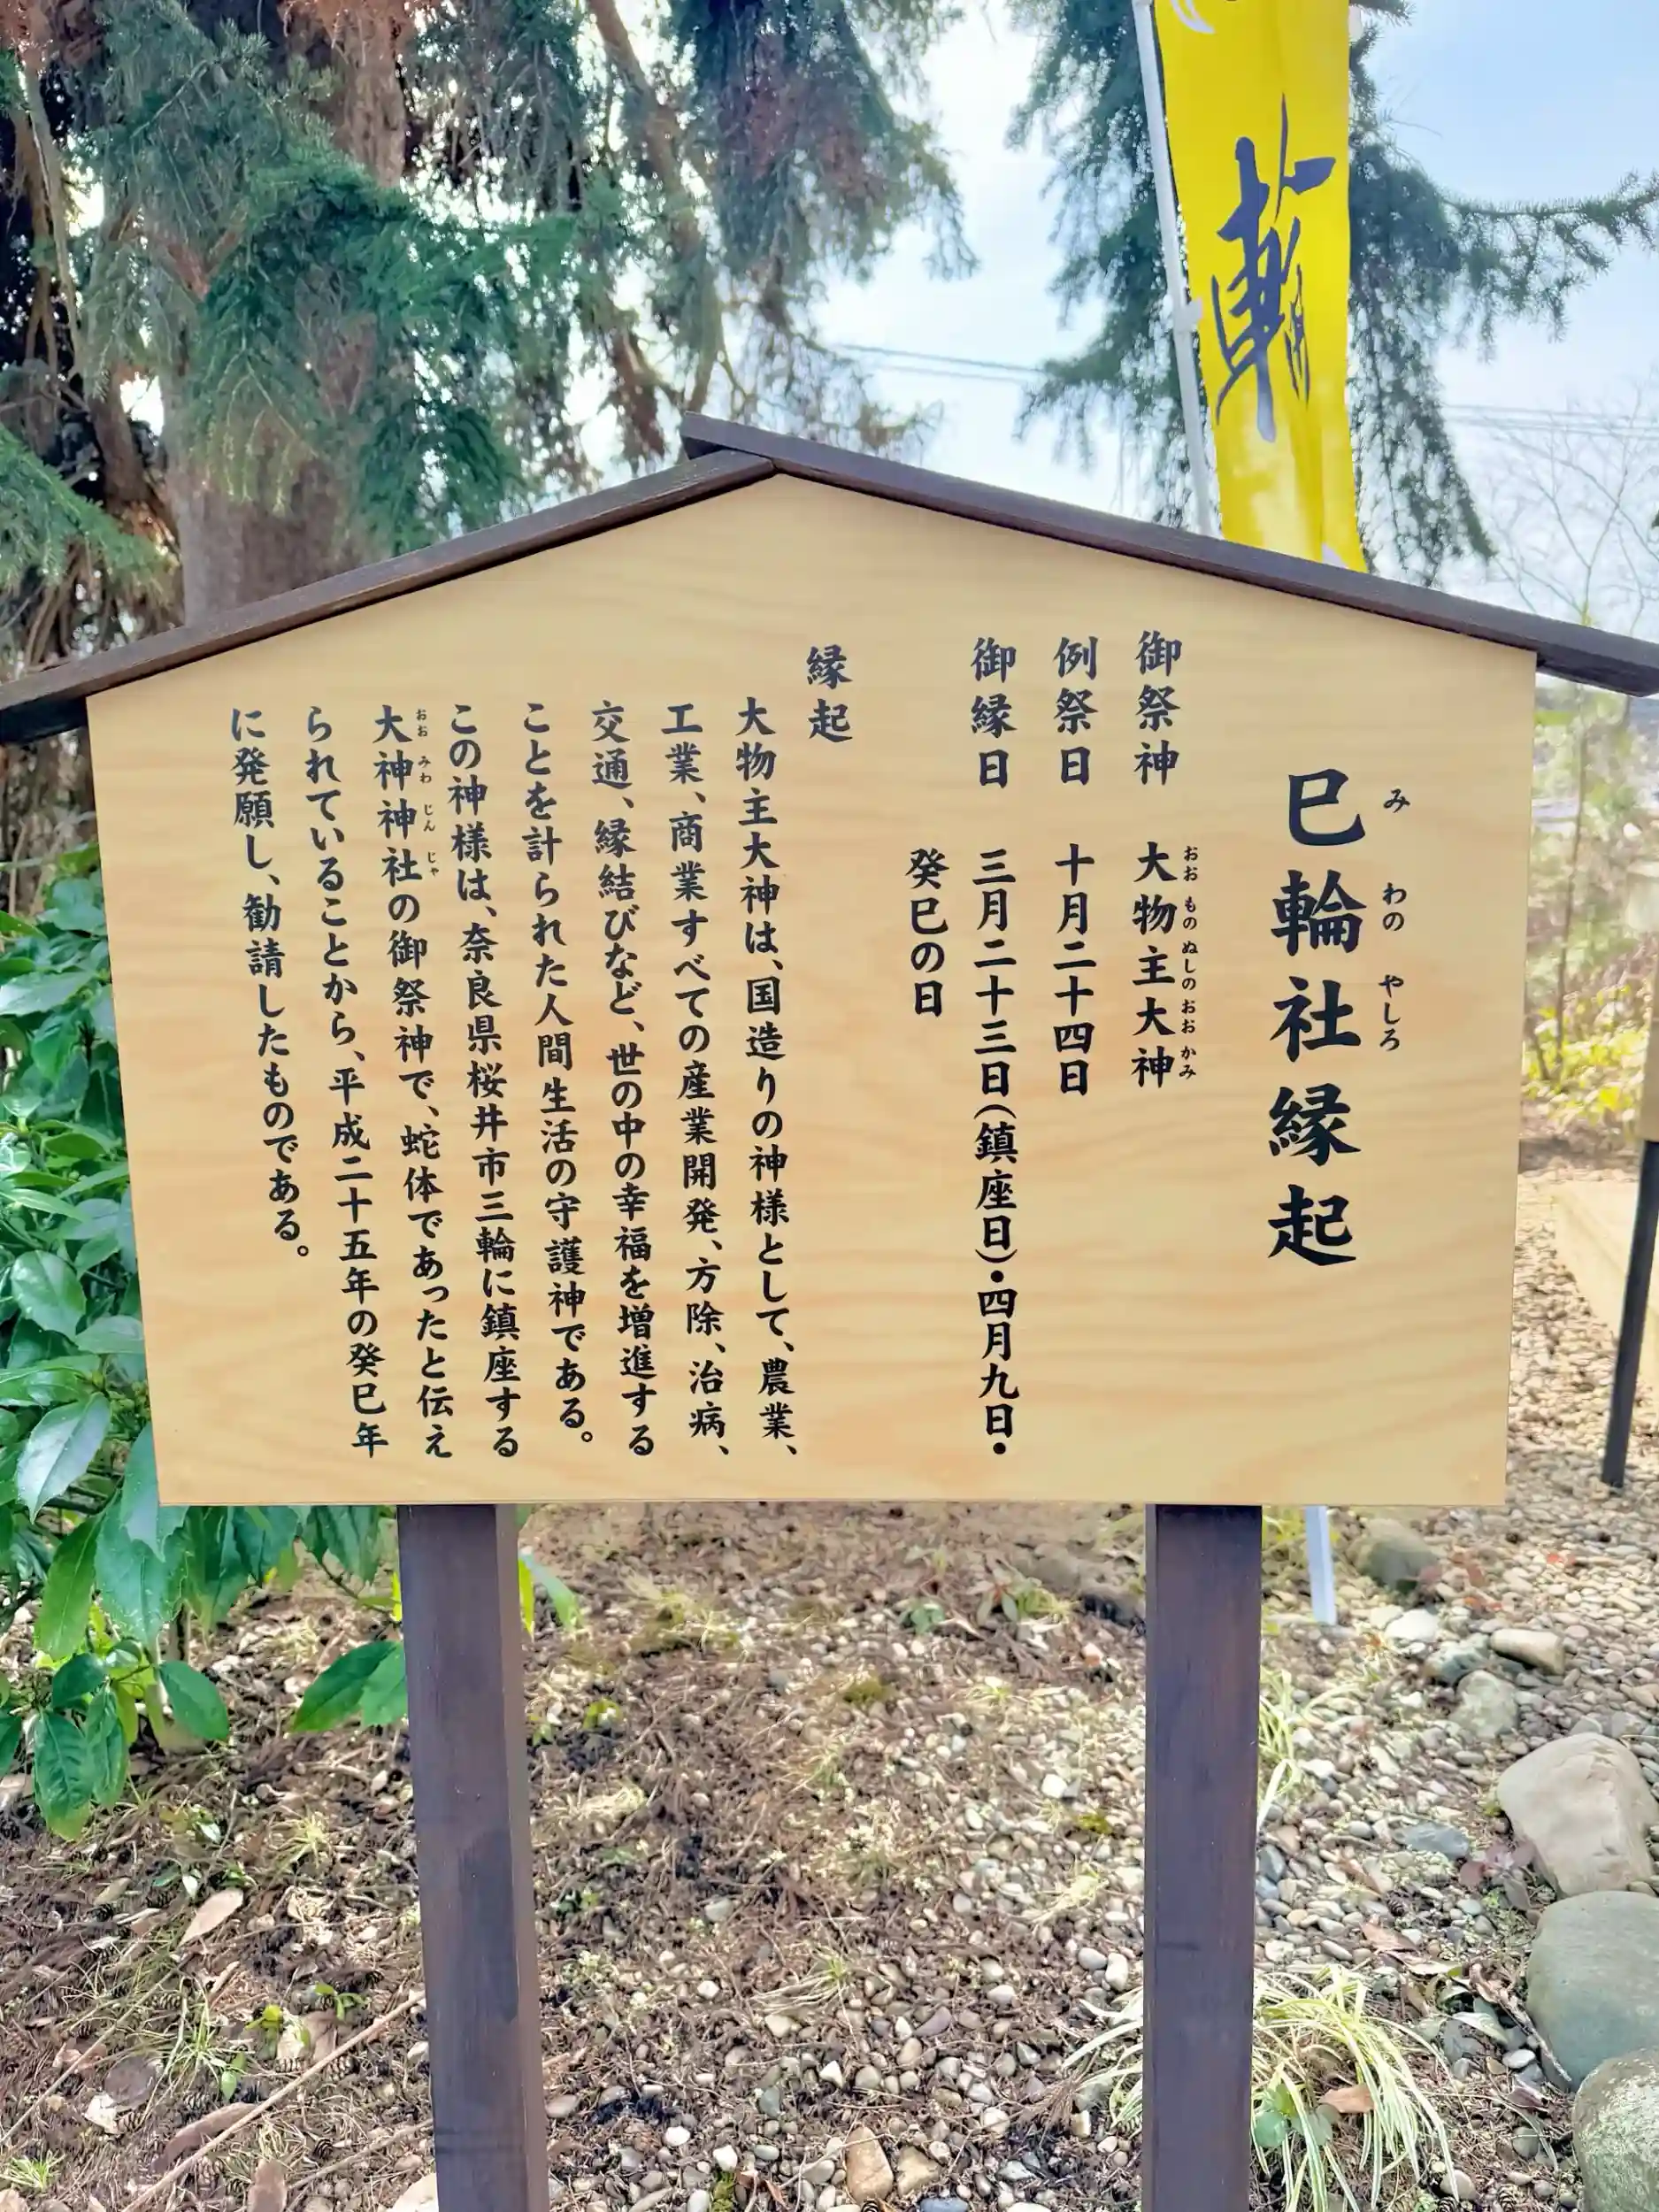 輪
巳輪社縁起
み わの やしろ
御祭神 大物主大神
おお もの ぬしの おお かみ
例祭日 十月二十四日
御縁日 三月二十三日(鎮座日)・四月九日・
癸巳の日
縁起
大物主大神は、国造りの神様として、農業、
工業、商業すべての産業開発、方除、治病、
交通、縁結びなど、世の中の幸福を増進する
ことを計られた人間生活の守護神である。
この神様は、奈良県桜井市三輪に鎮座する
大神神社の御祭神で、蛇体であったと伝え
おお みわ じん じゃ
られていることから、平成二十五年の癸巳年
に発願し、勧請したものである。